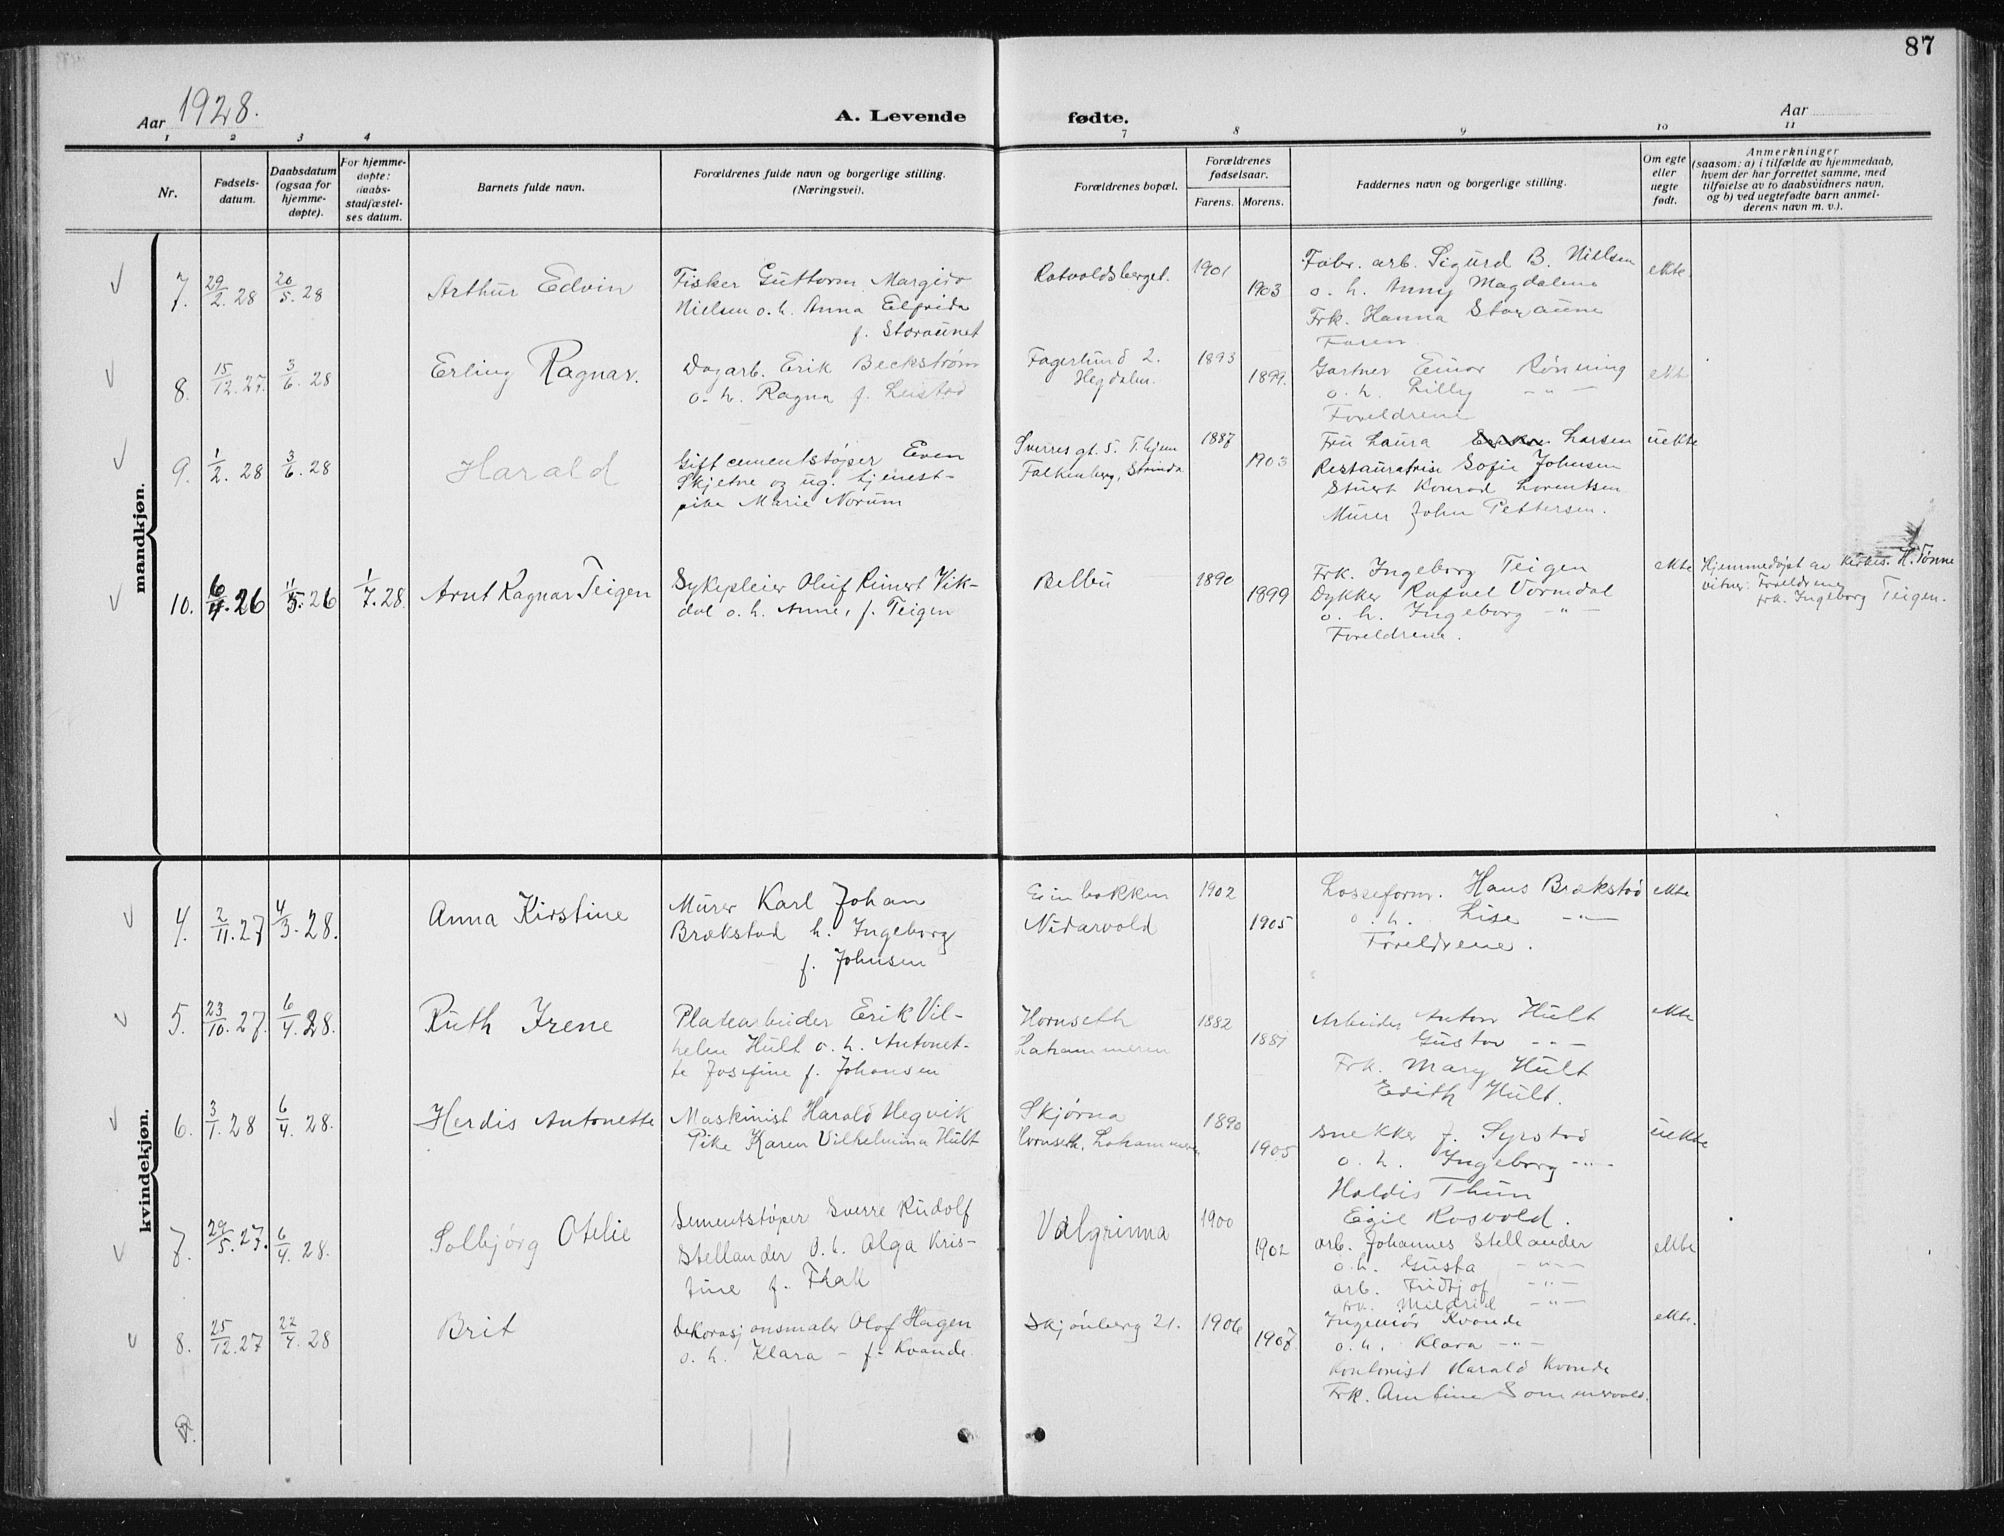 87
Aar 1928.
A. Levende fødte.
Aar
1 2 3 4 7 8 9 10 11
Nr.
Fødsels-
datum.
Daabsdatum
(ogsaa for
hjemme-
døpte).
For hjemme-
døpte:
daabs-
stadfæstel-
ses datum.
Barnets fulde navn.
Forældrenes fulde navn og borgerlige stilling.
(Næringsvei).
Forældrenes bopæl.
Forældrenes
fødselsaar.
Farens. Morens.
Faddernes navn og borgerlige stilling.
Om egte
eller
uegte
født.
Anmerkninger
(saasom: a) i tilfælde av hjemmedaab,
hvem der har forrettet samme, med
tilføielse av to daabsvidners navn,
og b) ved uegtefødte barn anmel-
derens navn m. v.).
mandkjøn.
7. 29/2. 28 20/5. 28
Arthur Edvin
Fisker Guttorm Margido
Nielsen o. h. Anna Elfrida
f. Storaunet
Rotvoldsberget.
1901
1903
Fabr. arb. Sigurd B. Nielsen
o. h. Anny Magdalene
Frk. Hanna Storaune
Faren.
ekte
8. 15/12. 27. 3/6. 28
Erling Ragnar.
Dagarb. Erik Beckstrøm
o. h. Ragna f. Leistad
Fagerlund 2.
Hegdalen.
1893
1899.
Gartner Einar Rønning
o. h. Lilly -"-
Foreldrene
ekte
9. 1/2. 28 3/6. 28
Harald
Gift cementstøper Even
Skjetne og ug. tjenest-
pike Marie Norum
Sverresgt. 5. T.hjem
Falkenberg, Strinda
1887
1903
Fru Laura Larsen
Restauratrise Sofie Johnsen
Stuert Konrad Lorentsen
Murer John Pettersen.
uekte
10. 6/4. 26 11/5. 26 1/7. 28.
Arnt Ragnar Teigen
Sykepleier Oluf Rinert Vik-
dal o. h. Anne, f. Teigen
Belbu
1890
1899
Frk. Ingeborg Teigen
Dykker Rafael Vormdal
o. h. Ingeborg -"-
Foreldrene.
ekte
Hjemmedøpt av Kirkes. H. Tønne
vitner: Foreldrene
frk. Ingeborg Teigen.
kvindekjøn.
4. 2/11. 27 4/3. 28.
Anna Kirstine
Murer Karl Johan
Brækstad h. Ingeborg
f. Johnsen
Einbakken
Nidarvold
1902
1905
Losseform. Hans Brækstad
o. h. Lise -"-
Foreldrene.
ekte
5. 23/10. 27. 6/4. 28.
Ruth Irene
Platearbeider Erik Vil-
helm Hult o. h. Antonet-
te Josefine f. Johansen
Hornseth
Lahammeren
1882
1887
Arbeider Anton Hult
Gustav -"-
Frk. Mary Hult
Edith Hult.
ekte
6. 3/1. 28 6/4. 28.
Herdis Antonette
Maskinist Harald Hegvik
Pike Karen Vilhelmina Hult
Skjørna
Hornseth, Lahammeren
1890
1905
Snekker J. Syrstad
o. h. Ingeborg -"-
Haldis Thun
Egil Rosvold.
uekte
7. 29/5. 27. 6/4. 28.
Solbjørg Otelie
Sementstøper Sverre Rudolf
Stellander o. h. Olga Kris-
tine f. Flak
Valgrinna
1900
1902
arb. Johannes Stellander
o. h. Gusta -"-
arb. Fridtjof -"-
frk. Mildrid -"-
ekte
8. 25/12. 27 22/4. 28
Brit
Dekorasjonsmaler Olof Hagen
o. h. Klara - f. Kvande.
Skjønberg 21.
1906
1907
Ingeniør Kvande
o. h. Klara -"-
Kontorist Harald Kvande
Frk. Antine Sommervold.
ekte.